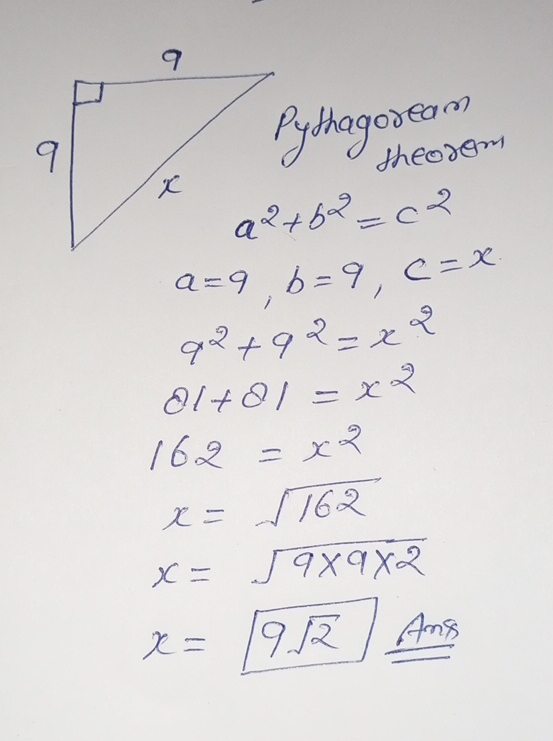 9
9
x
Pythagoream
theorem
a²+b²=c²
a=9, b=9, c=x
9²+9²=x²
81+81=x²
162=x²
x=√162
x=√9×9×2
x=9√2 Ans